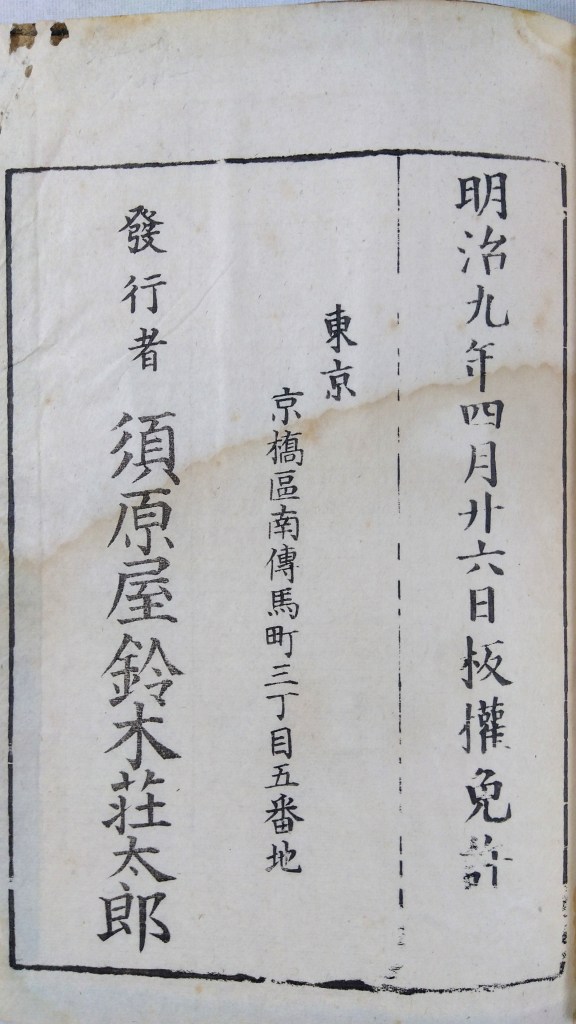 明治九年四月廿六日板權免許
東京
京橋區南傳馬町三丁目五番地
發行者 須原屋鈴木荘太郎